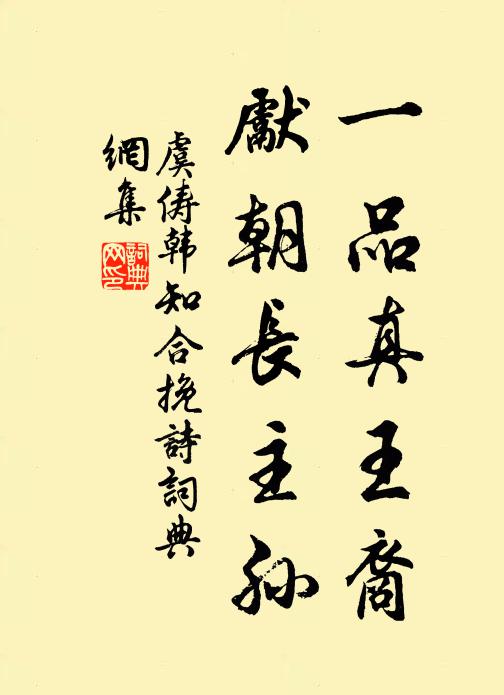 一品真王裔
獻朝長主孫
虞儔韩知合挽詩詞典
網集
詞典
网印